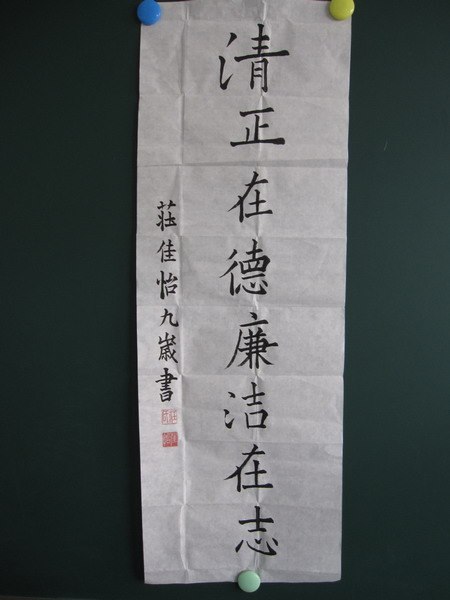 清正在德廉洁在志
莊佳怡九嵗書